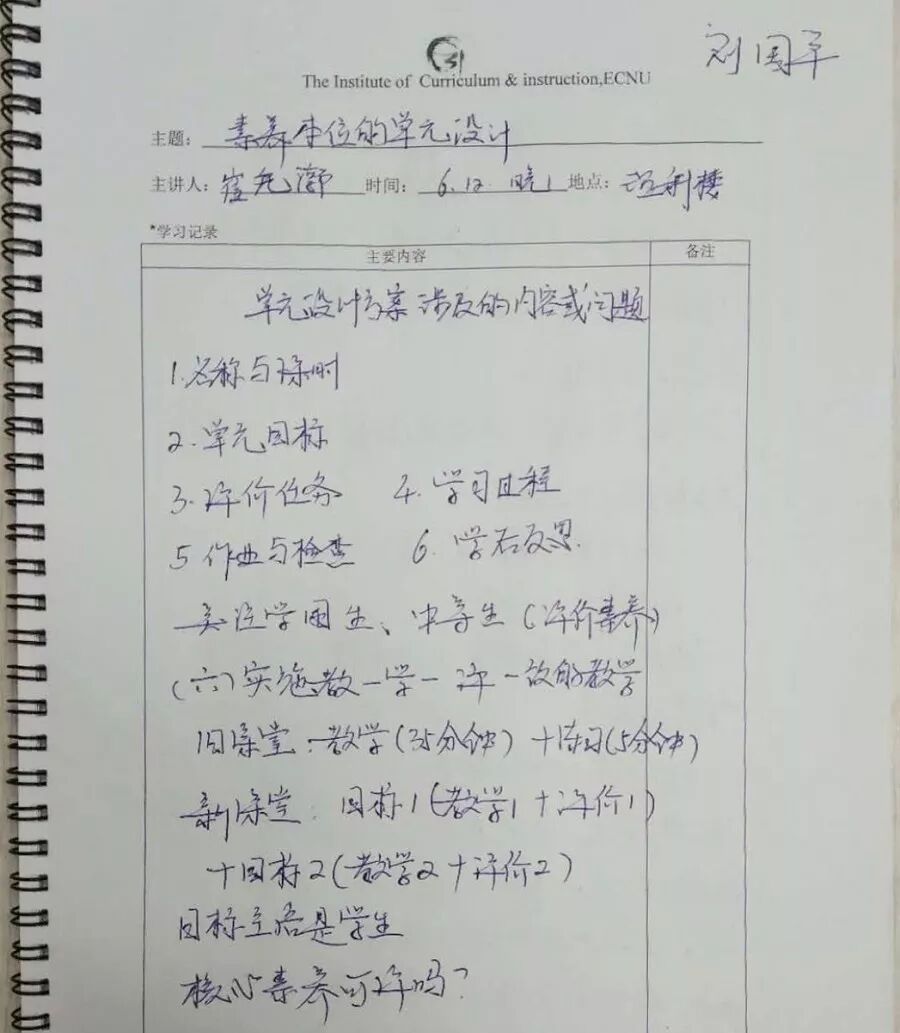 刘国平
The Institute of Curriculum & instruction,ECNU
主题: 素养本位的单元设计
主讲人: 崔允漷 时间: 6.12. 晚1 地点: 利楼
*学习记录
主要内容 备注
单元设计方案涉及的内容或问题
1.名称与课时
2.单元目标
3.评价任务 4.学习过程
5 作业与检查 6.学后反思.
关注学困生、中等生(评价素养)
(六)实施教一学一评一致的教学
旧课堂:教学(35分钟)十练习(5分钟)
新课堂:目标1(教学1+评价1)
十目标2(教学2+评价2)
目标主语是学生
核心素养可评吗?